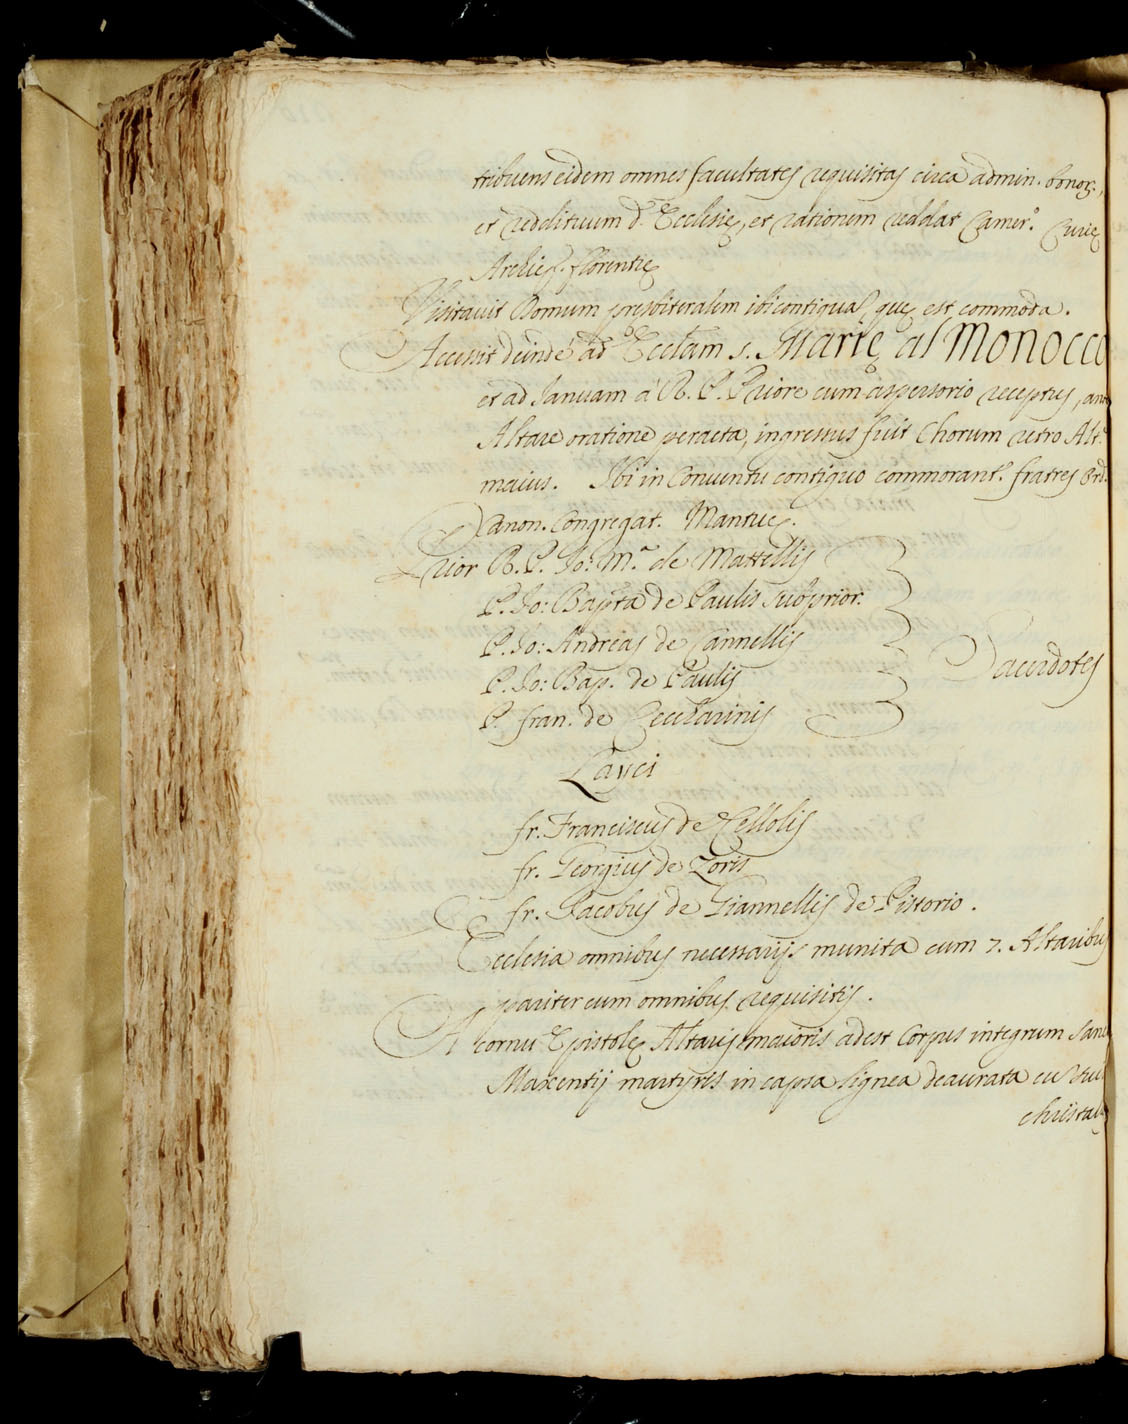 tribuens eidem omnes facultates requisitas circa admin. bonor.,
et reddituum d. Ecclesię, et rationem reddat Camer.º Curię
Archiep. florentię
Visitavit Domum presbiteralem ibi contiguã, quę est commoda.
Accessit deinde ad Eccl̃am S. Marię al Monocco
et ad Januam à R. P. Priore cum aspersorio receptus, ante
Altare oratione peracta, ingressus fuit Chorum retro Alt.e
maius. Ibi in Conventu contiguo commorant. fratres Ord.
Canon. Congregat. Mantuę.
Prior R. P. Jo: M.a de Mattellis
P. Jo: Bapt̃a de Paulis subprior.
P. Jo: Andreas de Cannellis
P. Jo: Bap. de Paulis
P. fran. de Ceccharinis
Sacerdotes
Layci
fr. Franciscus de Cellolis
fr. Georgius de Zoris
fr. Jacobus de Giannellis de Pistorio.
Ecclesia omnibus necessarijs munita cum 7. Altaribus
pariter cum omnibus requisitis.
A cornu Epistolę Altaris maioris adest Corpus integrum Sanc
Maxentij martyris in capsa lignea deaurata cũ
christal